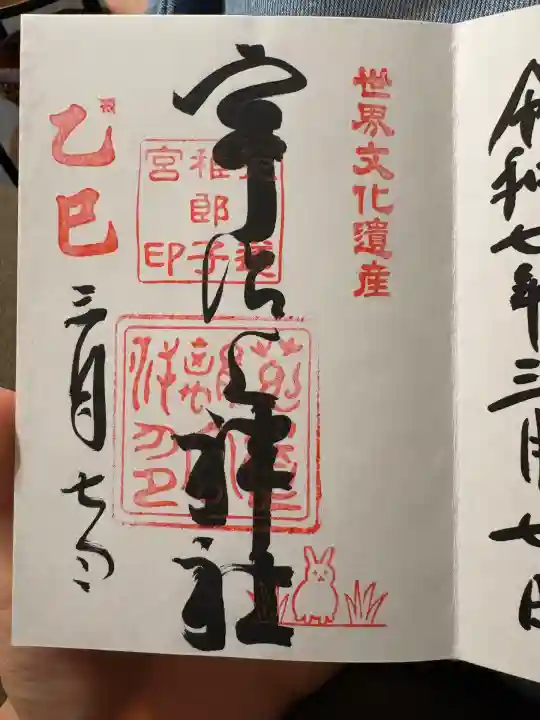 令和七年三月七日
世界文化遺産
宇治上神社
稚郎子
宮印
乙巳
三月七日